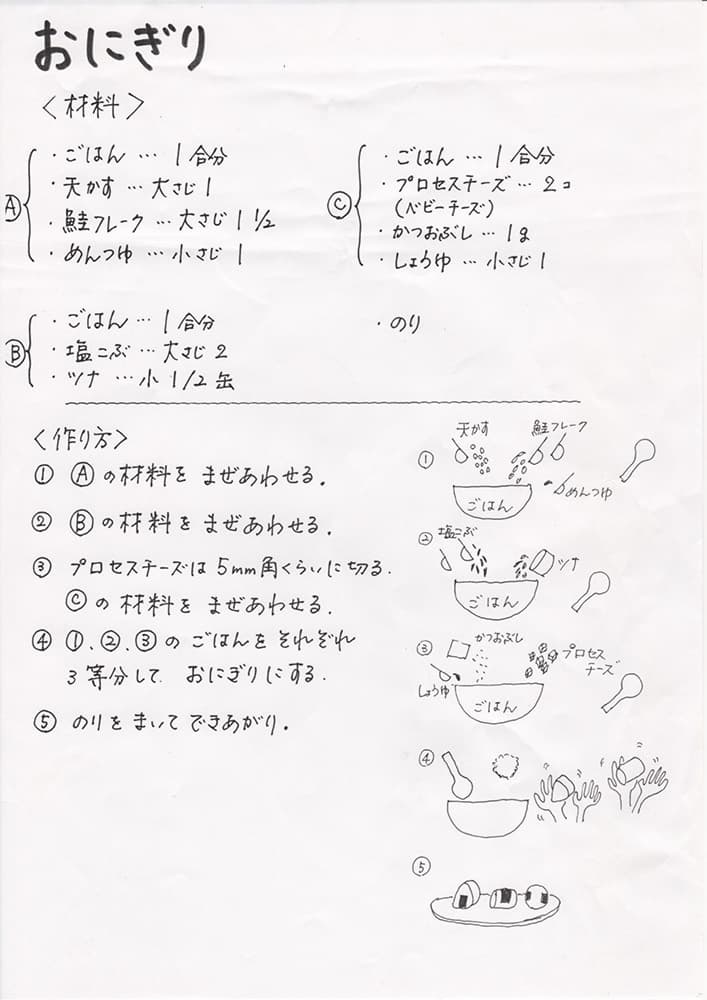 おにぎり
〈材料〉
Ⓐ
・ごはん … 1合分
・天かす … 大さじ1
・鮭フレーク … 大さじ1 1/2
・めんつゆ … 小さじ1
Ⓑ
・ごはん … 1合分
・塩こぶ … 大さじ2
・ツナ … 小 1/2缶
Ⓒ
・ごはん … 1合分
・プロセスチーズ … 2コ
(ベビーチーズ)
・かつおぶし … 1g
・しょうゆ … 小さじ1
・のり
〈作り方〉
① Ⓐの材料を まぜあわせる.
② Ⓑの材料を まぜあわせる.
③ プロセスチーズは 5mm角くらいに切る.
Ⓒの 材料を まぜあわせる.
④ ①、②、③の ごはんを それぞれ
3等分して おにぎりにする.
⑤ のりを まいて できあがり.
① 天かす 鮭フレーク
めんつゆ
ごはん
② 塩こぶ
ツナ
ごはん
③ かつおぶし
プロセス
チーズ
しょうゆ
ごはん
④
⑤